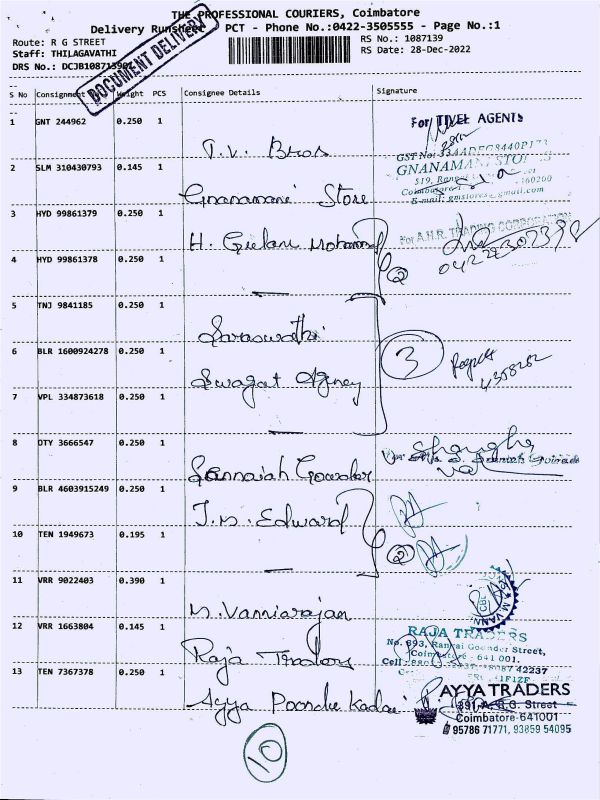 THE PROFESSIONAL COURIERS, Coimbatore
Delivery Runsheet PCT - Phone No.:0422-3505555 - Page No.:1
Route: R G STREET
RS No.: 1087139
Staff: THILAGAVATHI
RS Date: 28-Dec-2022
DRS No.: DCJB1087139001
DOCUMENT DELIVERY
S No Consignment Weight PCS Consignee Details Signature
1 GNT 244962 0.250 1 T.V. Bros For TIVEL AGENTS
2 SLM 310430793 0.145 1 Gnanamani Store GNANAMANI STORE
3 HYD 99861379 0.250 1 H. Gulam Mohamed For A.H.R. TRADING CORPORATION
4 HYD 99861378 0.250 1 2
5 TNJ 9841185 0.250 1 Saraswathi
6 BLR 1600924278 0.250 1 Swagat Agency 3
7 VPL 334873618 0.250 1
8 OTY 3666547 0.250 1 Sannaiah Gowder
9 BLR 4603915249 0.250 1 J.M. Edward
10 TEN 1949673 0.195 1 2
11 VRR 9022403 0.390 1 M. Vanniarajan
12 VRR 1663804 0.145 1 Raja Traders RAJA TRADERS
No. 693, Rangai Gounder Street,
Coimbatore - 641 001.
13 TEN 7367378 0.250 1 Ayya Poondu Kadai AYYA TRADERS
391-A, R.G. Street
Coimbatore-641001
95786 71771, 93859 54095
10